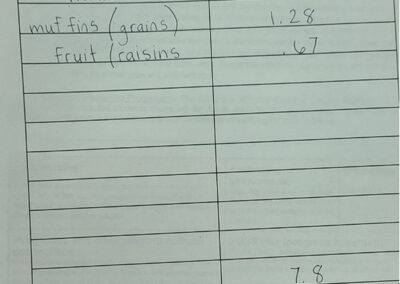 muffins (grains) 1.28
fruit (raisins .67
7.8